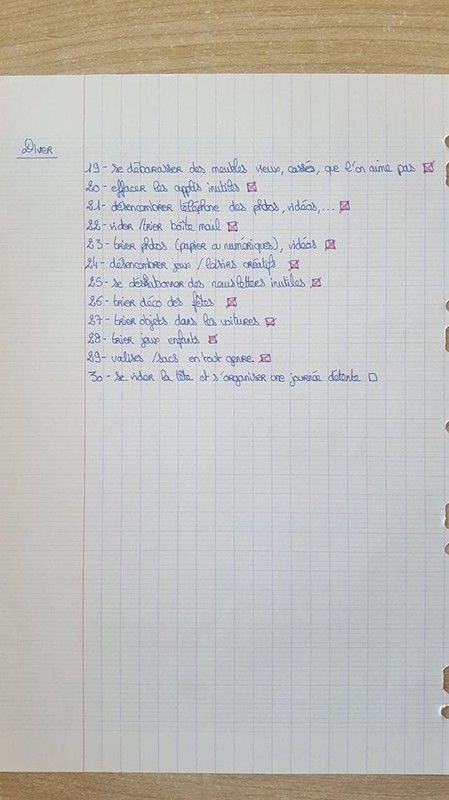 Diver
19 - se débarasser des meubles vieux, cassés, que l'on aime pas
20 - effacer les applis inutiles
21 - désencombrer téléphone des photos, vidéos,...
22 - vider / trier boîte mail
23 - trier photos (papier ou numériques), vidéos
24 - désencombrer jeux / loisirs créatifs
25 - se désabonner des newsletters inutiles
26 - trier déco des fêtes
27 - trier objets dans les voitures
28 - trier jeux enfants
29 - valises / sacs en tout genre
30 - se vider la tête et s'organiser une journée détente